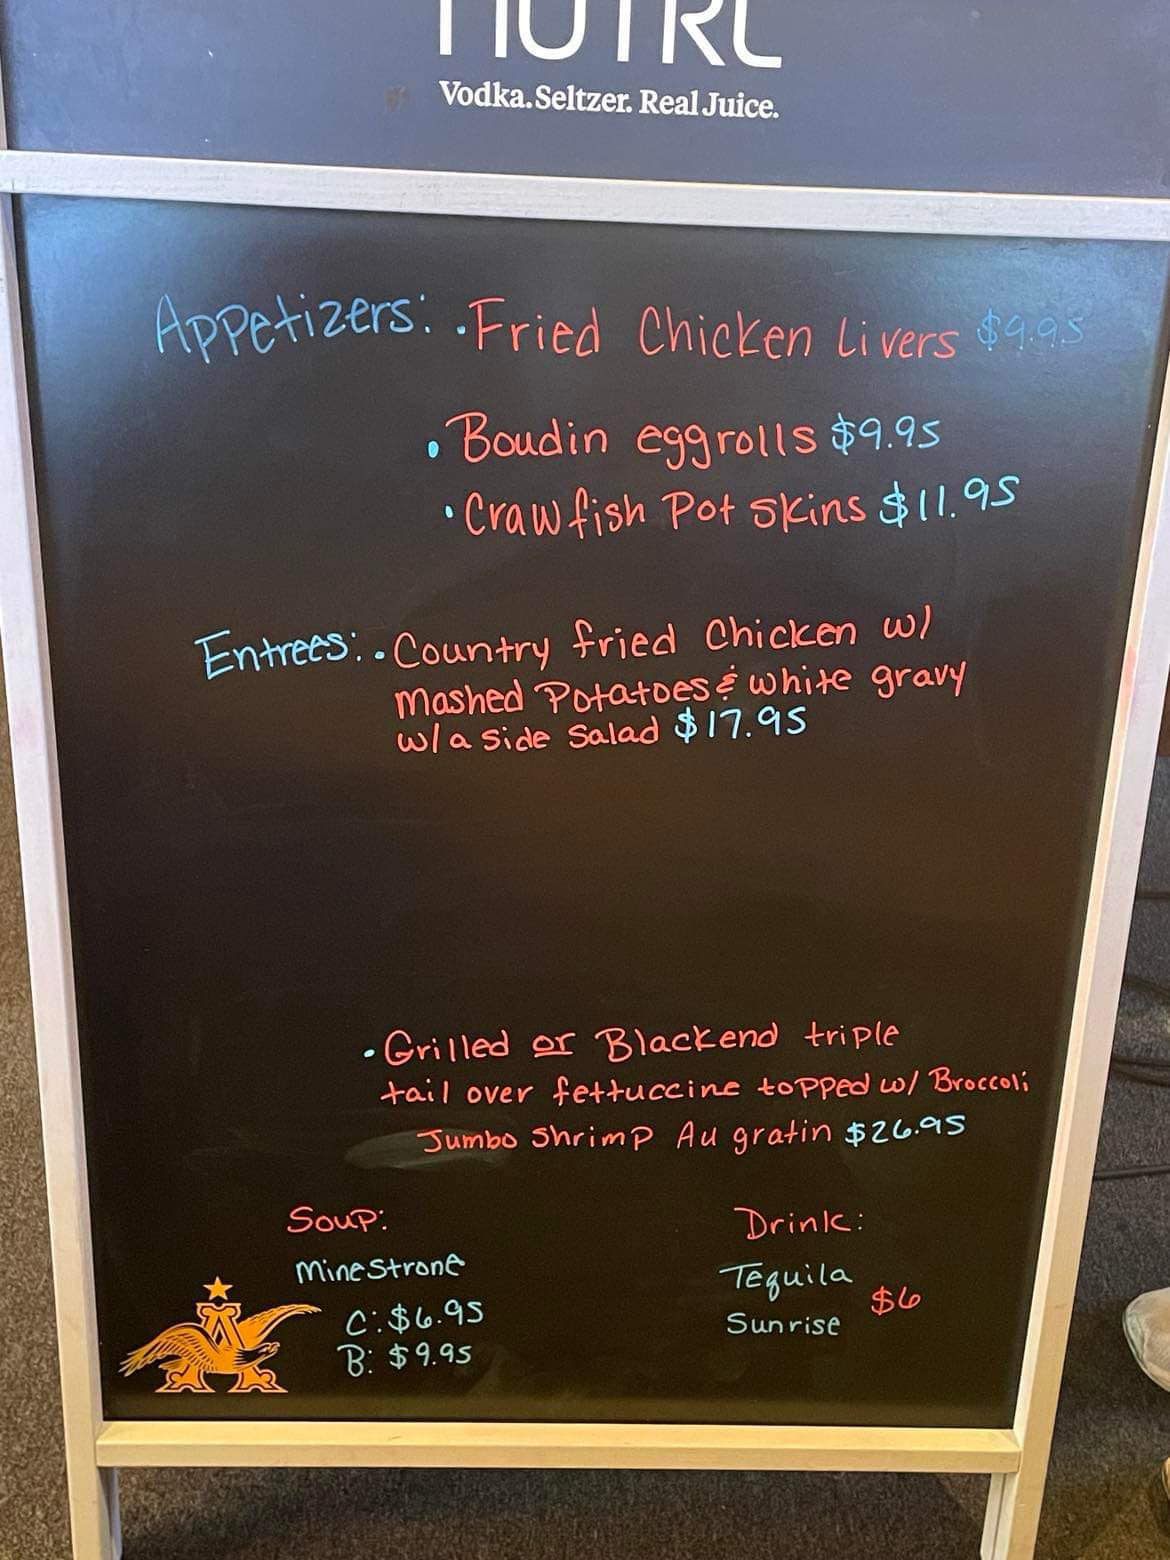 NÜTRL
Vodka. Seltzer. Real Juice.
Appetizers: • Fried Chicken Livers $9.95
• Boudin eggrolls $9.95
• Crawfish Pot skins $11.95
Entrees: • Country fried Chicken w/
mashed Potatoes & white gravy
w/ a side salad $17.95
• Grilled or Blackend triple
tail over fettuccine topped w/ Broccoli
Jumbo Shrimp Au gratin $26.95
Soup:
Minestrone
C: $6.95
B: $9.95
Drink:
Tequila
Sunrise
$6
A